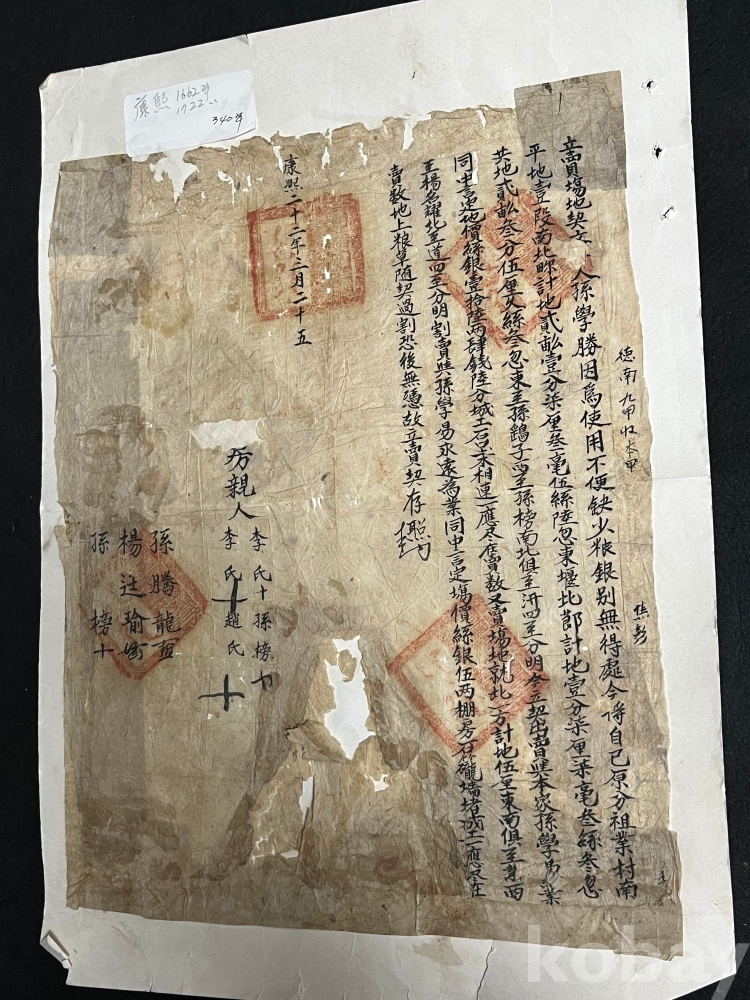 康熙 1662年
1722..
340年
德南九甲收本甲
立賣塲地契 人孫學勝因爲使用不便缺少粮銀別無得處今將自己原分祖業村南
平地壹段南北畛計地貳畝壹分柒厘叁毫伍絲陸忽東堰北節計地壹分柒厘柒毫叁絲叁忽
共地貳畝叁分伍厘 絲叁忽東至孫鷂子西至孫榜南北俱至 四至分明今立契出賣與本家孫學易 業
同中言定地價絲銀壹拾陸兩肆錢陸分城土石 木相連一應尽在賣數又賣塲地就北一方計地伍厘東南俱至 西
至楊名耀北至道四至分明割賣與孫學易永遠為業同中言定塲價絲銀伍两棚房石 墻堵 土一應尽在
賣數地上粮草随契過割恐後無憑故立賣契存照
康熙二十三年三月二十五
房親人
李氏十孫榜
李氏十趙氏十
孫騰龍
楊 瑜
孫榜十
kobay